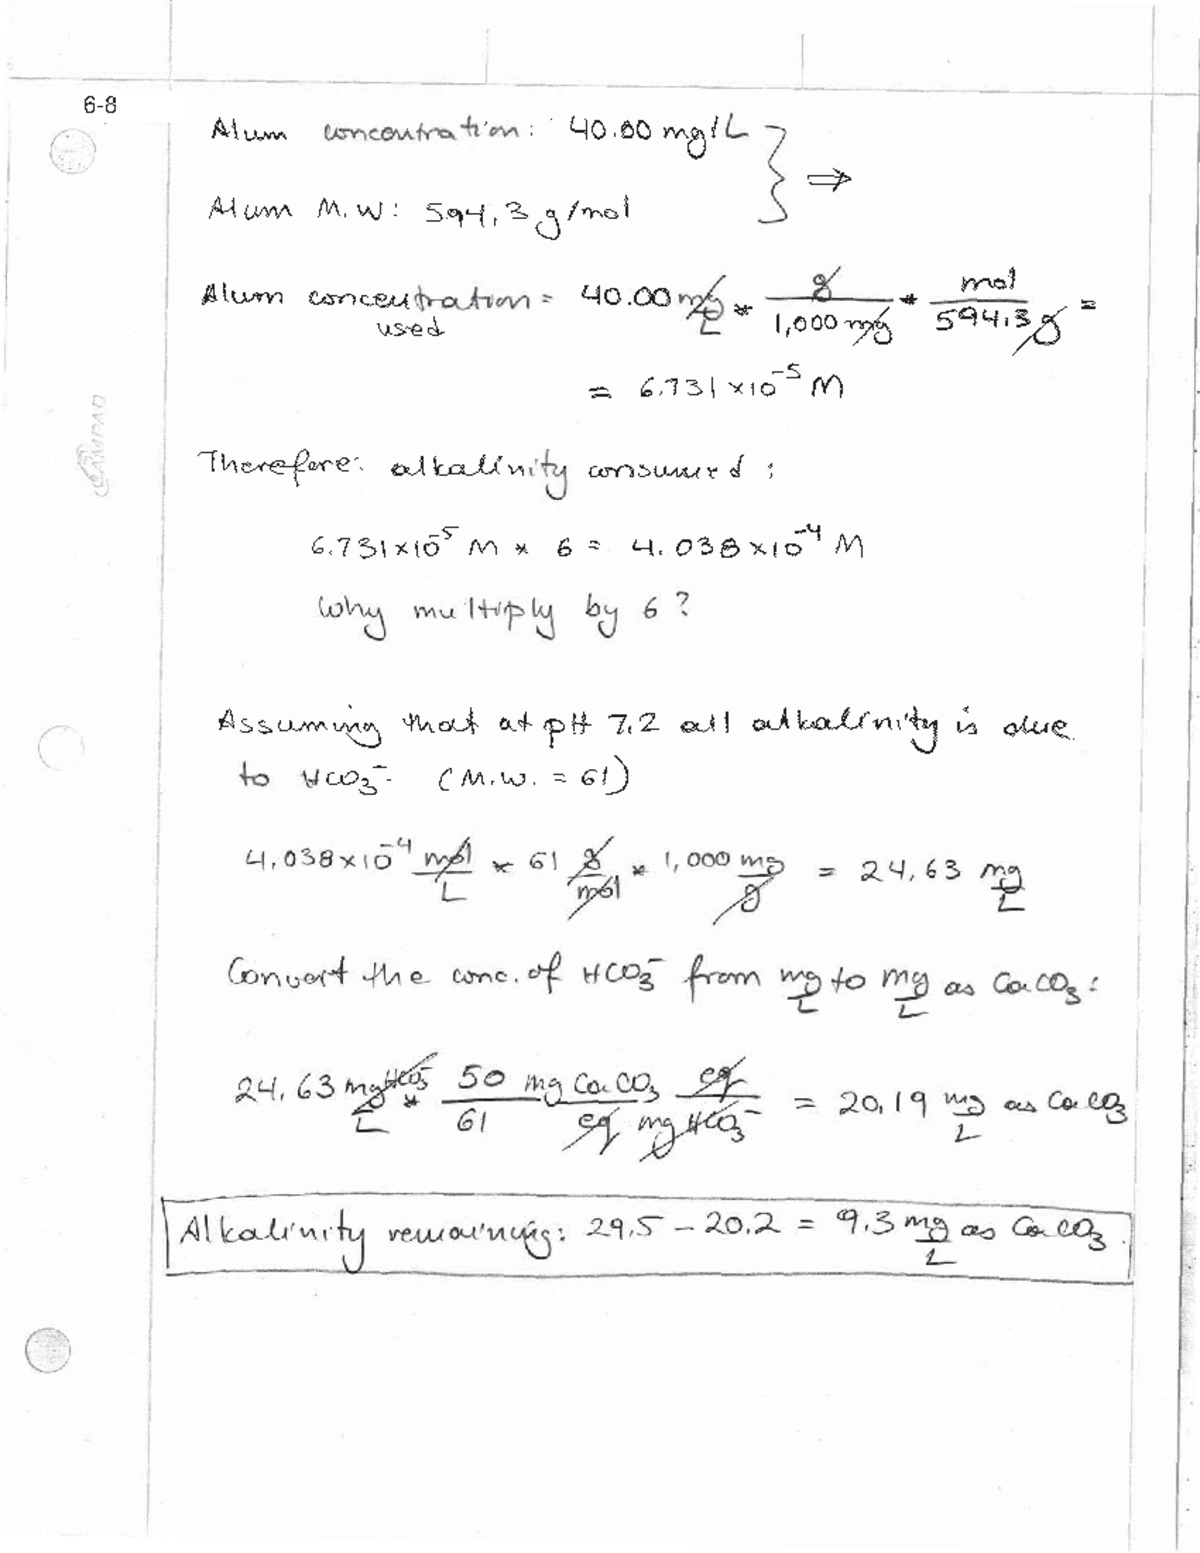 6-8
Alum concentration: 40.00 mg/L
Alum M.W: 594.3 g/mol } ⇒
Alum concentration used = 40.00 mg/L * g/1,000 mg * mol/594.3 g =
= 6.731 x 10^-5 M
CAMPAD
Therefore: alkalinity consumed:
6.731x10^-5 M * 6 = 4.038x10^-4 M
Why multiply by 6?
Assuming that at pH 7.2 all alkalinity is due
to HCO3^-. (M.W. = 61)
4.038x10^-4 mol/L * 61 g/mol * 1,000 mg/g = 24.63 mg/L
Convert the conc. of HCO3^- from mg/L to mg/L as CaCO3:
24.63 mg HCO3^-/L * 50/61 mg CaCO3/eq eq/mg HCO3^- = 20.19 mg/L as CaCO3
Alkalinity remaining: 29.5 - 20.2 = 9.3 mg/L as CaCO3.